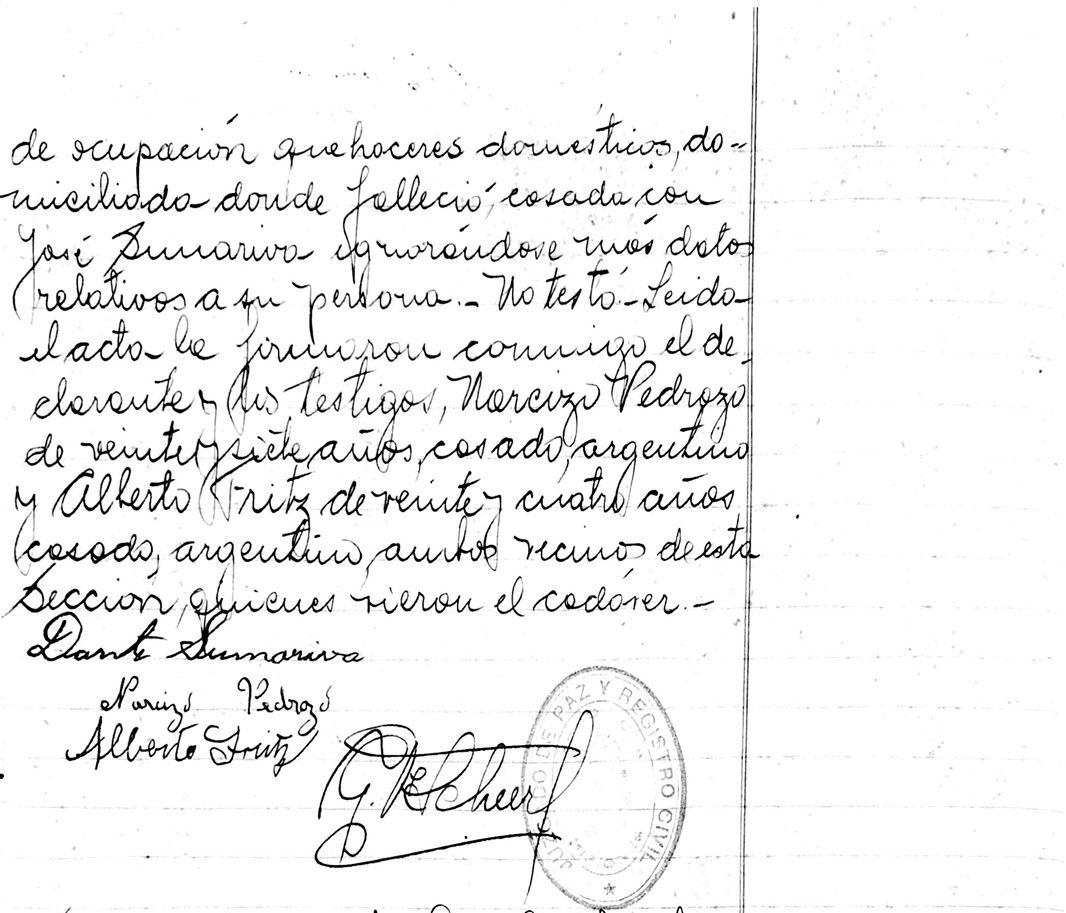 de ocupación quehaceres domésticos, do-
miciliada donde falleció, casada con
José Sumariva ignorándose más datos
relativos a su persona.- No testó.- Leida
el acta la firmaron conmigo el de-
clarante y los testigos, Narcizo Pedrozo
de veinte y siete años, casado, argentino
y Alberto Fritz de veinte y cuatro años
casado, argentino, ambos vecinos de esta
Sección, quienes vieron el cadáver.-
Dante Sumariva
Narcizo Pedrozo
Alberto Fritz
JUZGADO DE PAZ Y REGISTRO CIVIL